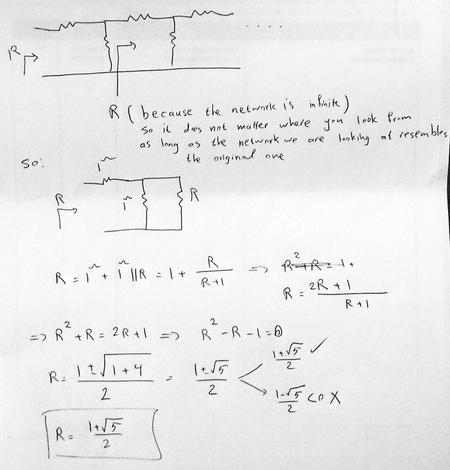 R
R ( because the network is infinite)
so it does not matter where you look from
as long as the network we are looking at resembles
the original one
So:
1Ω
R 1Ω R
R = 1Ω + 1Ω || R = 1 + R/(R+1) => R² + R = 1 +
R = (2R + 1)/(R+1)
=> R² + R = 2R + 1 => R² - R - 1 = 0
R = (1 ± √(1+4))/2 = (1 ± √5)/2 < (1+√5)/2 ✓
(1-√5)/2 < 0 X
R = (1+√5)/2